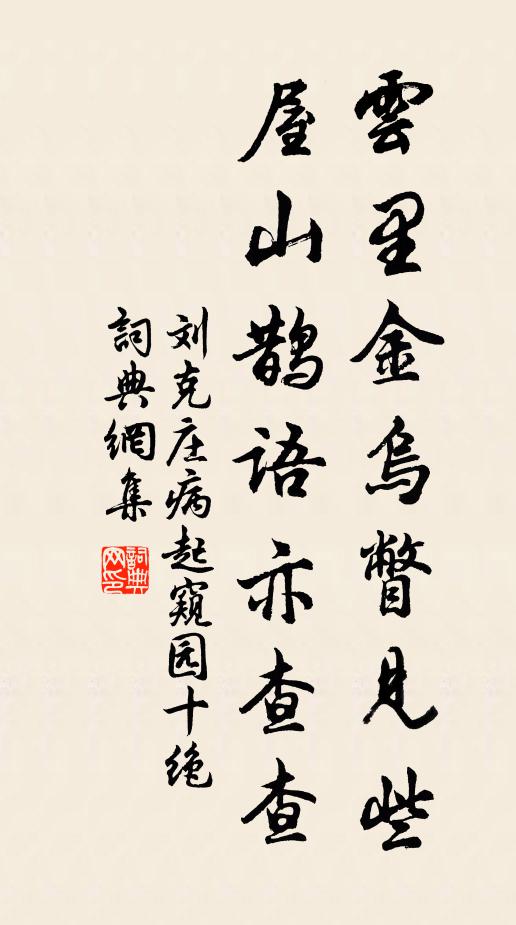 雲里金烏瞥見些
屋山鵲语亦查查
刘克庄病起窺园十绝
詞典網集
詞典网印